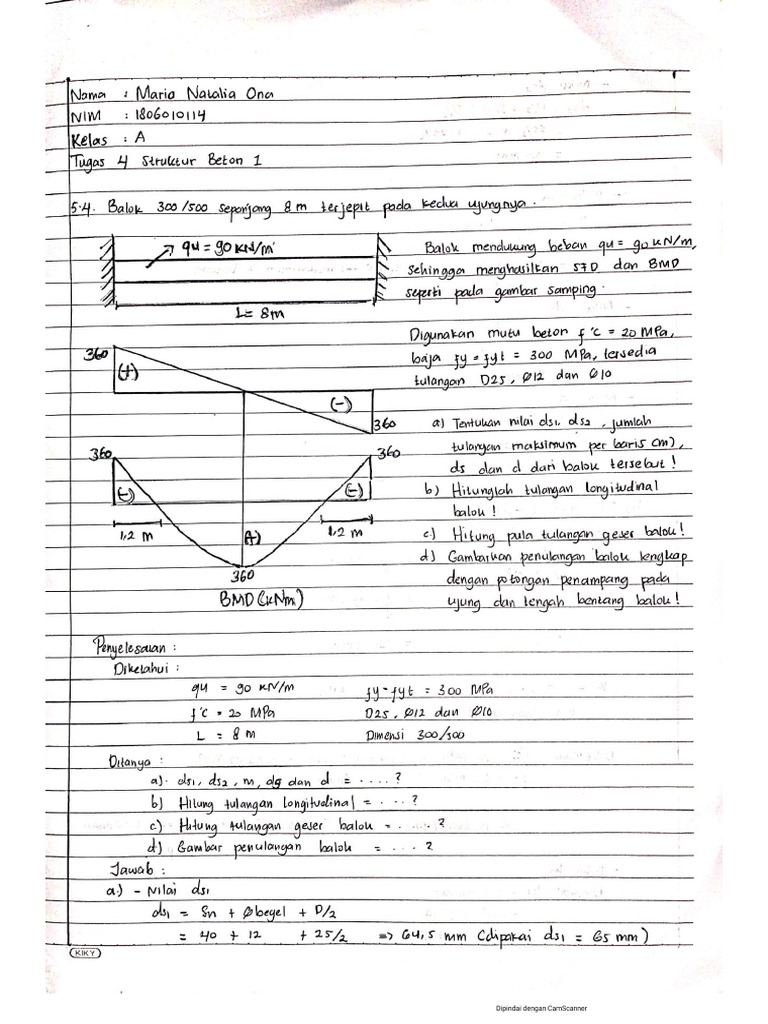 1
Nama : Maria Natalia Ona
NIM : 1806010114
Kelas : A
Tugas 4 Struktur Beton 1
5.4. Balok 300/500 sepanjang 8 m terjepit pada kedua ujungnya.
qu = 90 kN/m'
L = 8m
Balok mendukung beban qu = 90 kN/m,
sehingga menghasilkan SFD dan BMD
seperti pada gambar samping.
Digunakan mutu beton f'c = 20 MPa,
baja fy = fyt = 300 MPa, tersedia
tulangan D25, Ø12 dan Ø10
360
(+)
(-)
360
360
360
(-)
(-)
(+)
1,2 m
1,2 m
360
BMD (kNm)
a) Tentukan nilai ds1, ds2, jumlah
tulangan maksimum per baris (m),
ds dan d dari balok tersebut!
b) Hitunglah tulangan longitudinal
balok!
c) Hitung pula tulangan geser balok!
d) Gambarkan penulangan balok lengkap
dengan potongan penampang pada
ujung dan tengah bentang balok!
Penyelesaian :
Diketahui :
qu = 90 kN/m fy = fyt = 300 MPa
f'c = 20 MPa D25, Ø12 dan Ø10
L = 8 m Dimensi 300/500
Ditanya :
a). ds1, ds2, m, dg dan d = .... ?
b) Hitung tulangan longitudinal = .... ?
c) Hitung tulangan geser balok = .... ?
d) Gambar penulangan balok = .... ?
Jawab :
a.) - Nilai ds1
ds1 = Sn + Øbegel + D/2
= 40 + 12 + 25/2 => 64,5 mm (dipakai ds1 = 65 mm)
KIKY
Dipindai dengan CamScanner